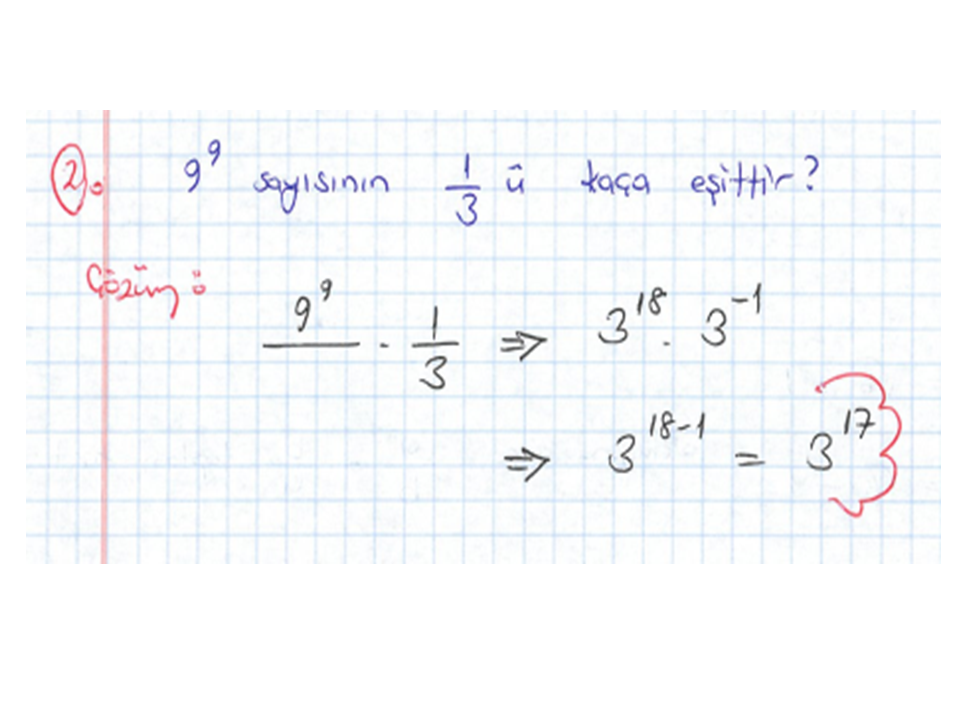 2. 9⁹ sayısının 1/3 ü kaça eşittir?
Çözüm:
9⁹ · 1/3 ⇒ 3¹⁸ · 3⁻¹
⇒ 3¹⁸⁻¹ = 3¹⁷